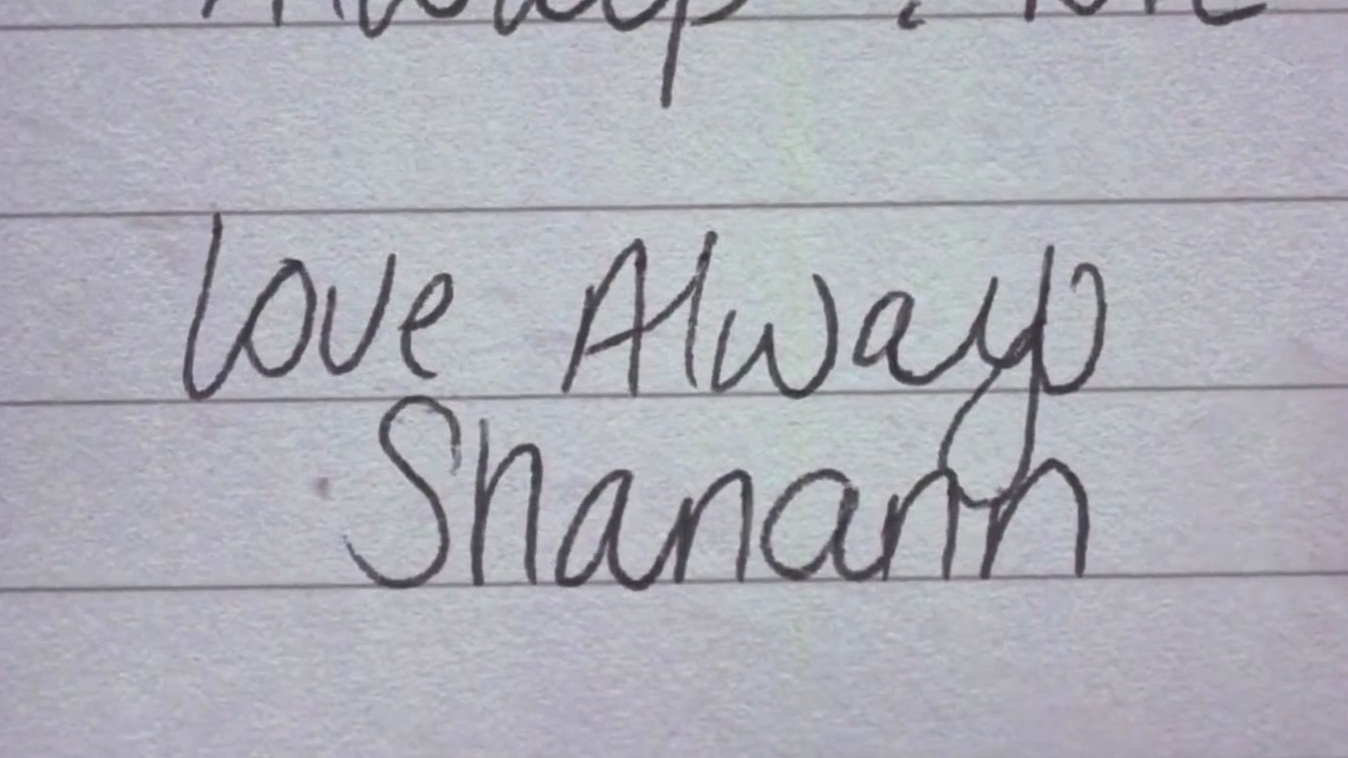 Love Always
Shanann